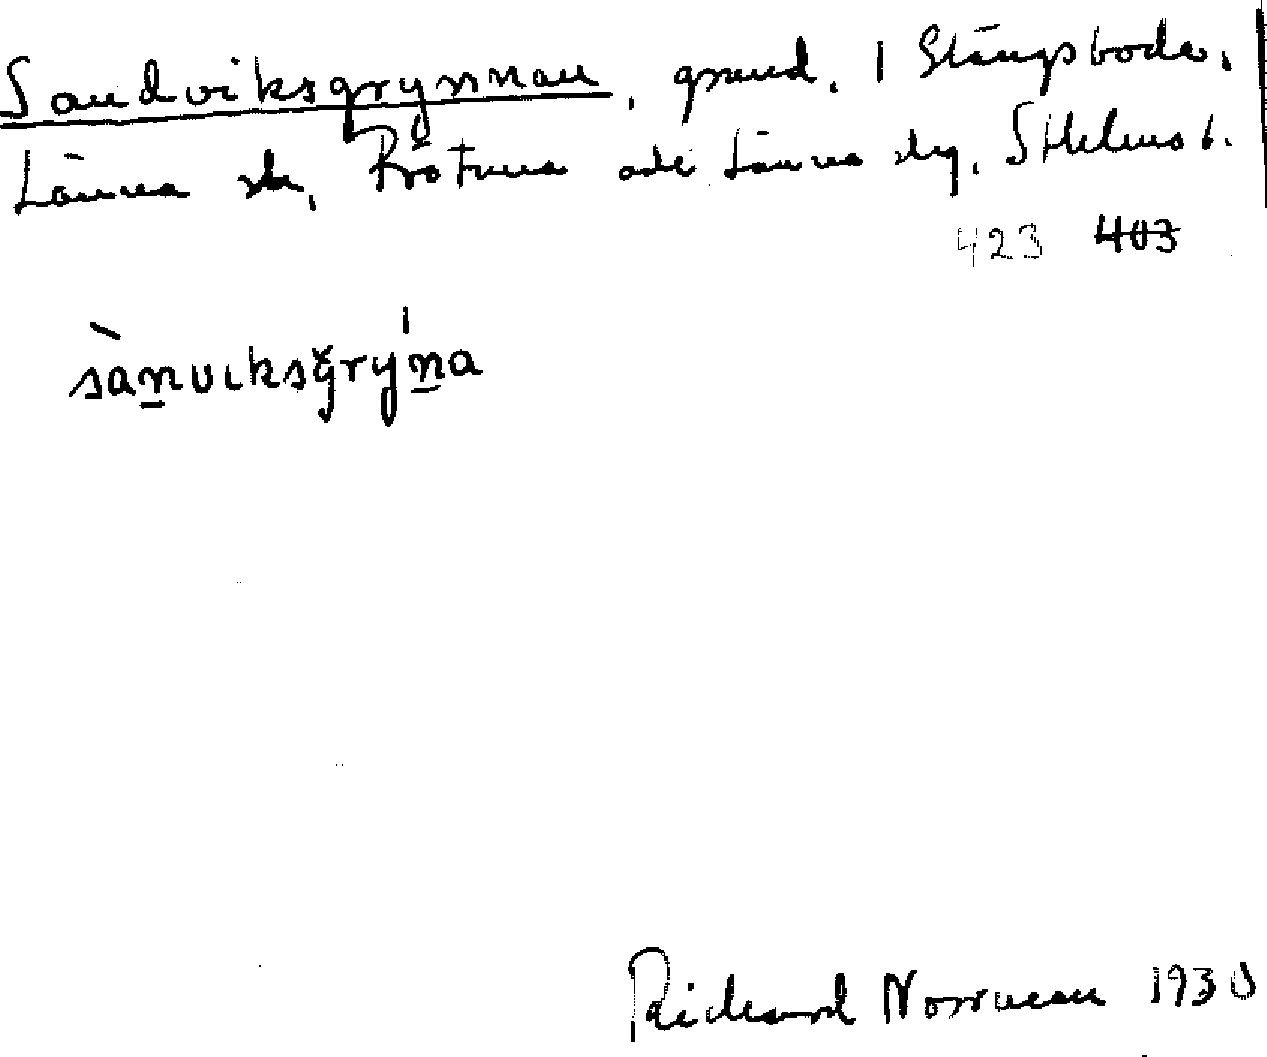 Sandviksgrynnan, grund, | Stängsboda,
Länna sn, Frötuna och Länna skg, Sthlms l.
423 403
sànvɩksgrýna
Richard Norrman 1930